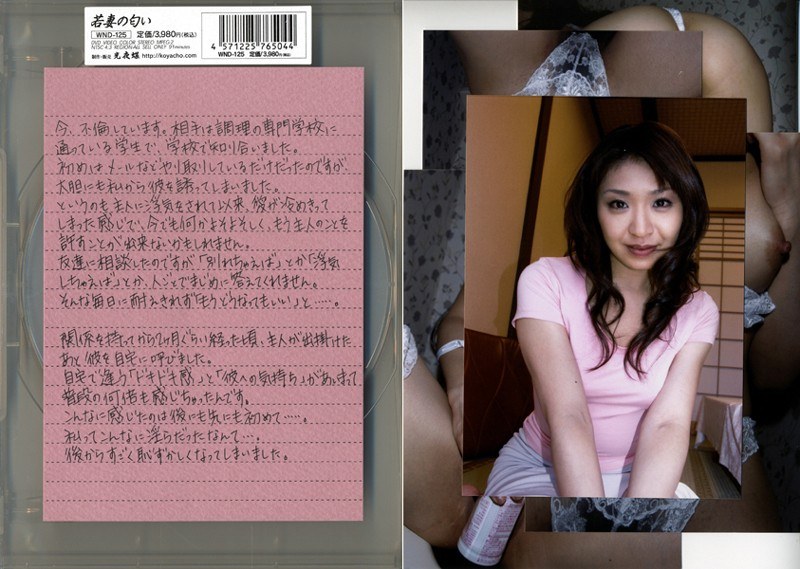 若妻の匂い
WND-125 定価/3,980円(税込)
DVD VIDEO COLOR STEREO MPEG 2
NTSC 4:3 REGION-ALL SELL ONLY 91minutes
制作・販売 光夜蝶 http://koyacho.com
4 571225 765044
WND-125 定価/3,980円(税込)
今、不倫しています。相手は調理の専門学校に
通っている学生で、学校で知り合いました。
初めはメールなどやり取りしているだけだったのですが、
大胆にも私から彼を誘ってしまいました。
というのも主人に浮気をされて以来、愛が冷めきって
しまった感じで、今でも何かよそよそしく、もう主人のことを
許すことが出来ないかもしれません。
友達に相談したのですが「別れちゃえば」とか「浮気
しちゃえば」とか、人ごとでまじめに答えてくれません。
そんな毎日に耐えきれず「もうどうなってもいい」と……。
関係を持ってから2ヶ月ぐらい経った頃、主人が出掛けた
あと彼を自宅に呼びました。
自宅で違う「ドキドキ感」と「彼への気持ち」があいまって
普段の何倍も感じちゃったんです。
こんなに感じたのは後にも先にも初めて……。
私ってこんなに淫らだったなんて…。
後からすごく恥ずかしくなってしまいました。